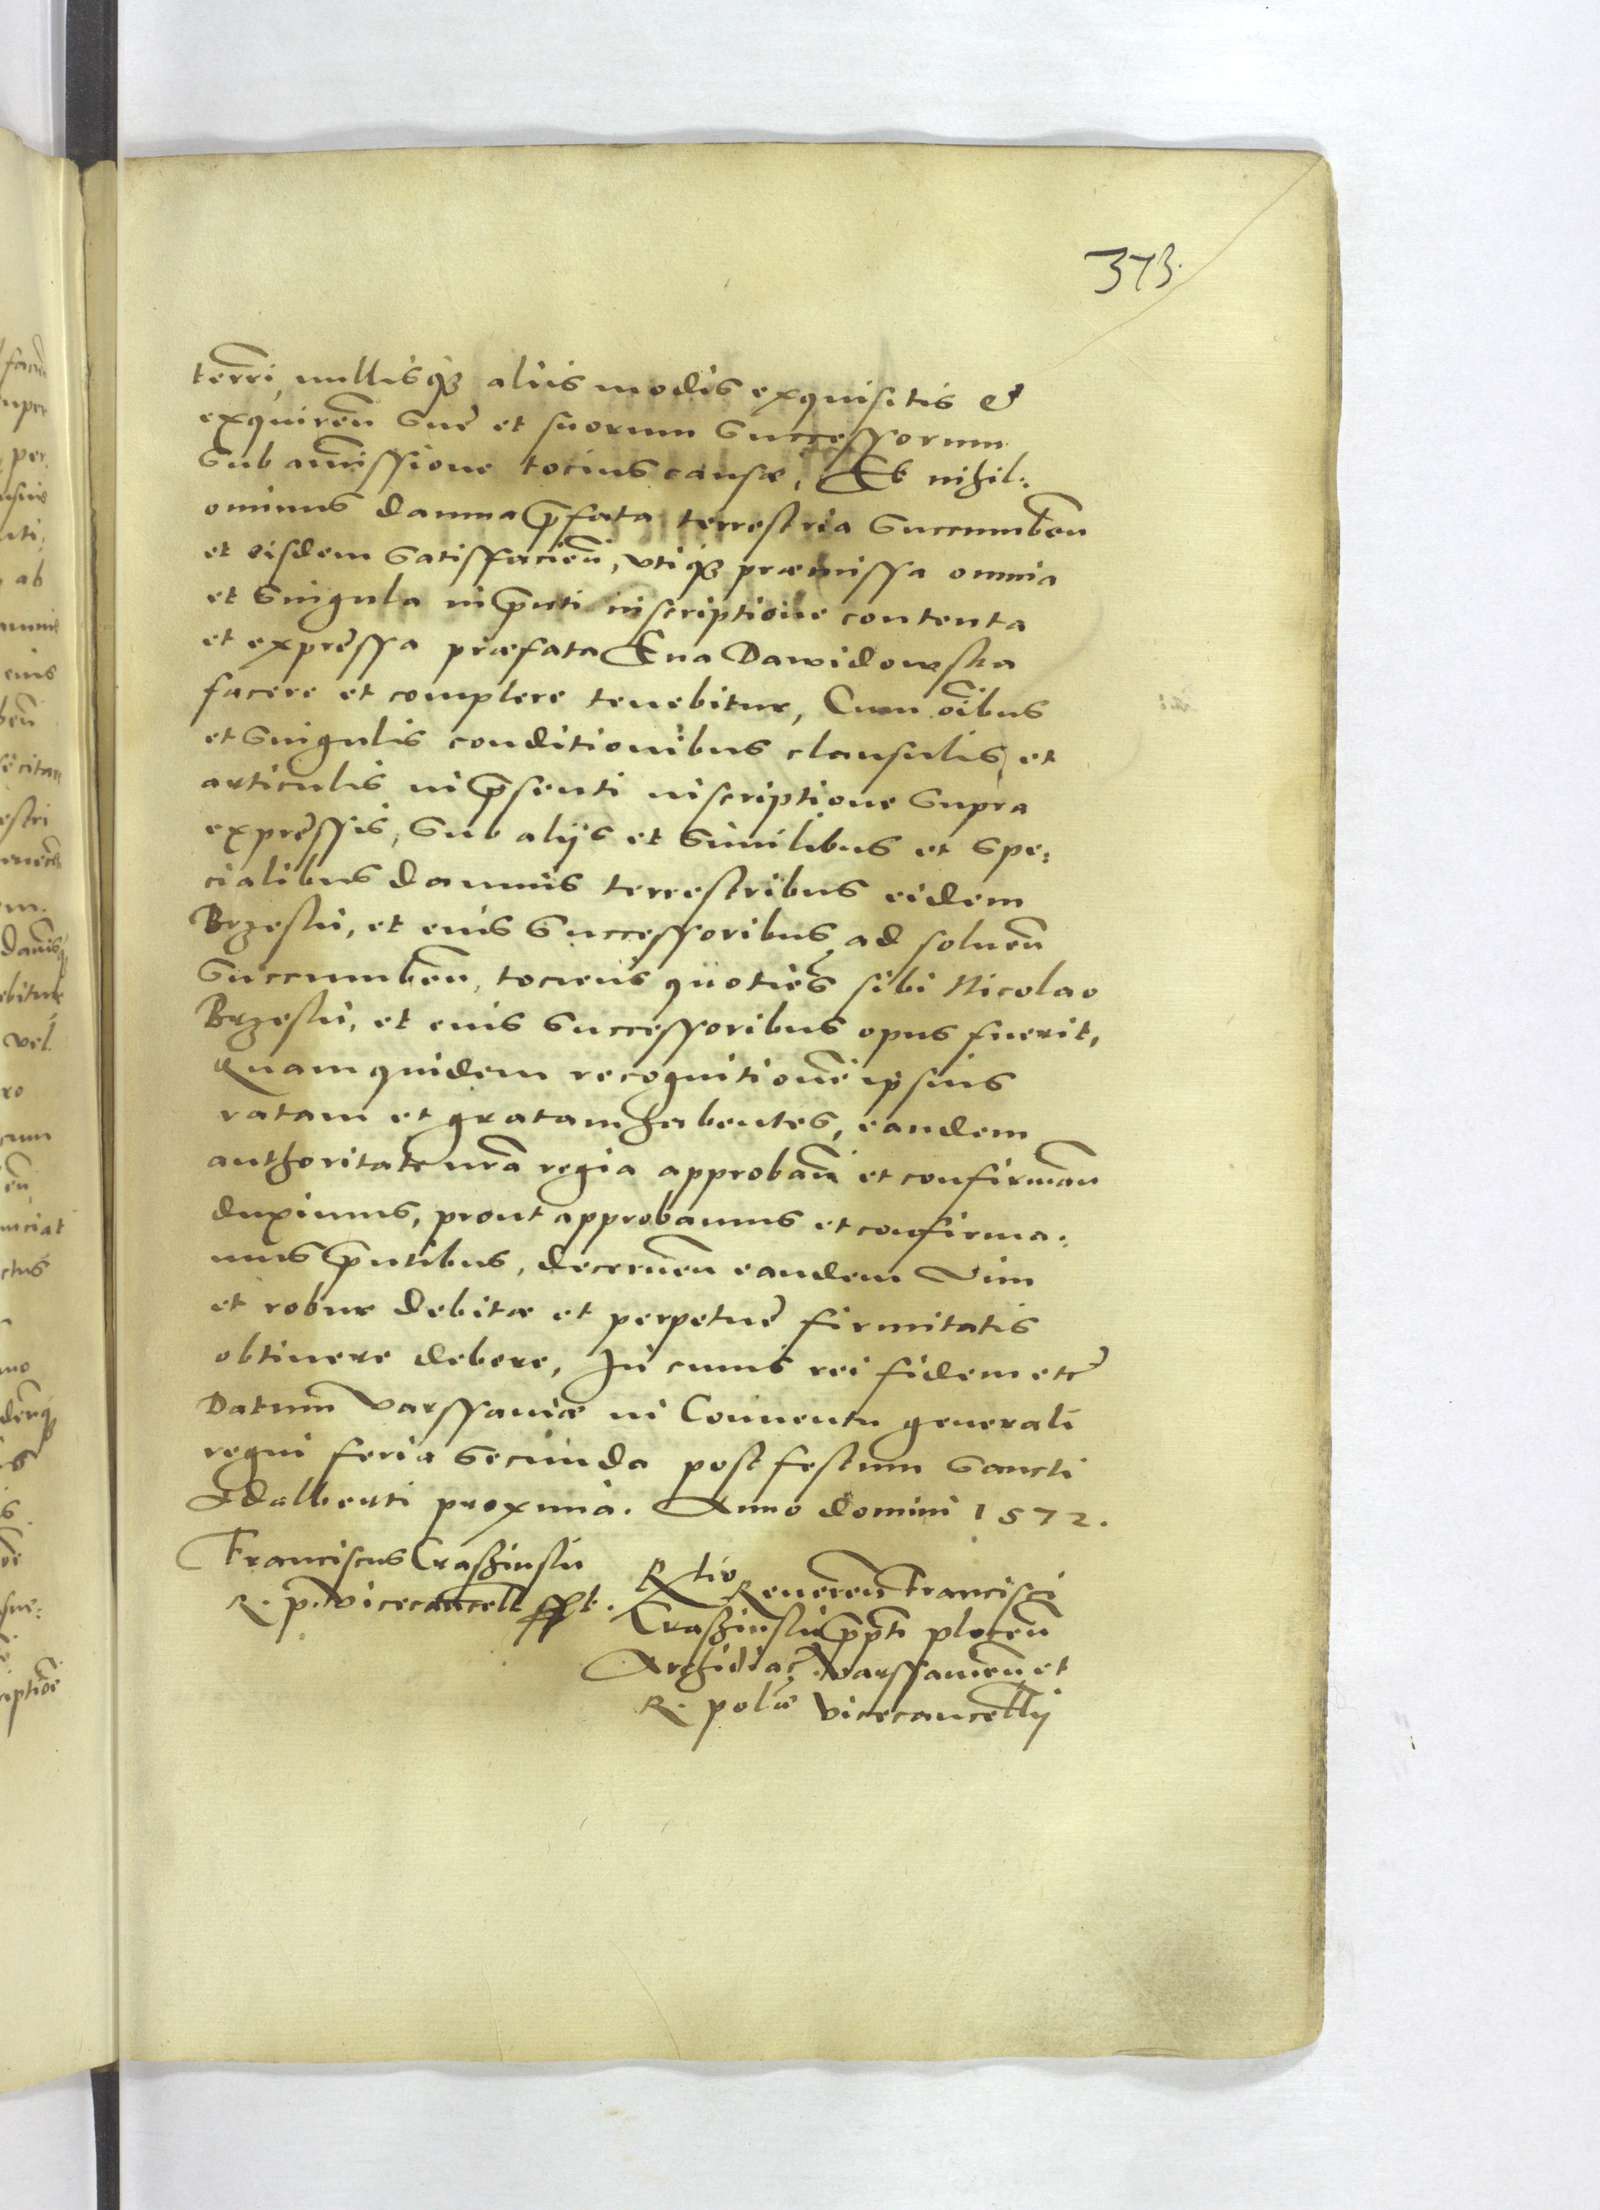 373.
terrᷓi, nullisqꝫ aliis modis exquisitis et
exquireñ Sue et suorum Successorum
Sub amissione tocius causæ, Et nihil:
ominus damna p̄fata terrestria Succumbeñ
et eisdem Satisfacieñ, vtiqꝫ præmissa omnia
et Singula in p̄nti inscriptione contenta
et expressa præfata Eua Dawidowska
facere et complere tenebitur, Cum oĩbus
et Singulis conditionibus clausulis, et
articulis in p̄senti inscriptione Supra
expressis, Sub aliis et Similibus et Spe:
cialibus damnis terrestribus eidem
Brzeski, et eius Successoribus ad soluen̄
Succumben̄, tociens quoties sibi Nicolao
Brzeski, et eius Successoribus opus fuerit,
Quam quidem recognitionē ipsius
ratam et gratam habentes, eandem
authoritate nr̄a regia approban̄ et confirman̄
duximus, prout approbamus et confirma:
mus p̄ntibus, decernen̄ eandem vim
et robur debitæ et perpetue firmitatis
obtinere debere, In cuius rei fidem etc̄
Datum Varssauiæ in Conuentu generali
regni feria Secunda post festum Sancti
Adalberti proxima. Anno domini 1572.
Franciscus Crasinski
R. p. vicecancell sst.
Rtio Reueren̄ Francisci
Crasinski p̄pti plocen̄
Archidiac̄. Varssauien̄ et
R. poliæ Vicecancellij